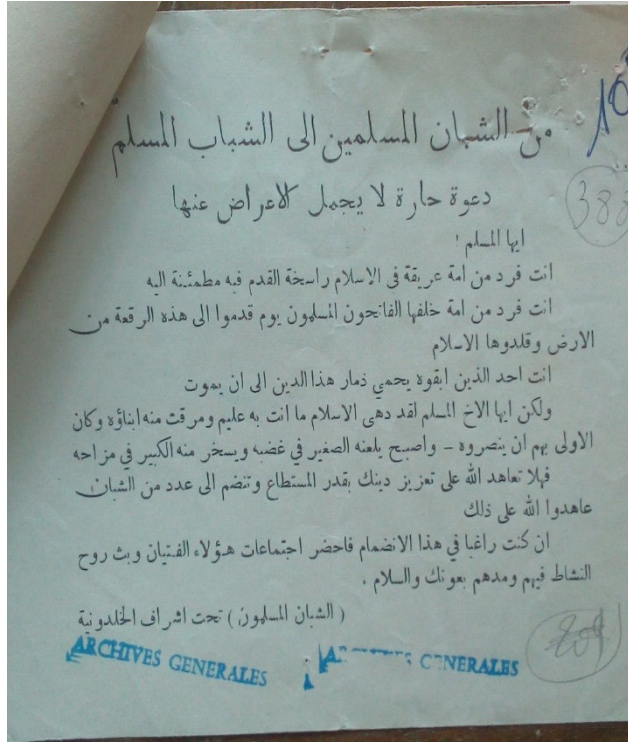 من الشبان المسلمين الى الشباب المسلم
دعوة حارة لا يجمل الاعراض عنها
ايها المسلم !
انت فرد من امة عريقة فى الاسلام راسخة القدم فيه مطمئنة اليه
انت فرد من امة خلفها الفاتحون المسلمون يوم قدموا الى هذه الرقعة من
الارض وقلدوها الاسلام
انت احد الذين ابقوه يحمي ذمار هذا الدين الى ان يموت
ولكن ايها الاخ المسلم لقد دهى الاسلام ما انت به عليم ومرقت منه ابناؤه وكان
الاولى بهم ان ينصروه – واصبح يلعنه الصغير في غضبه ويسخر منه الكبير في مزاحه
فهلا تعاهد الله على تعزيز دينك بقدر المستطاع وتنضم الى عدد من الشبان
عاهدوا الله على ذلك
ان كنت راغبا في هذا الانضمام فاحضر اجتماعات هؤلاء الفتيان وبث روح
النشاط فيهم ومدهم بعونك والسلام .
( الشبان المسلمون ) تحت اشراف الخلدونية
ARCHIVES GENERALES
GENERALES
10
388
209